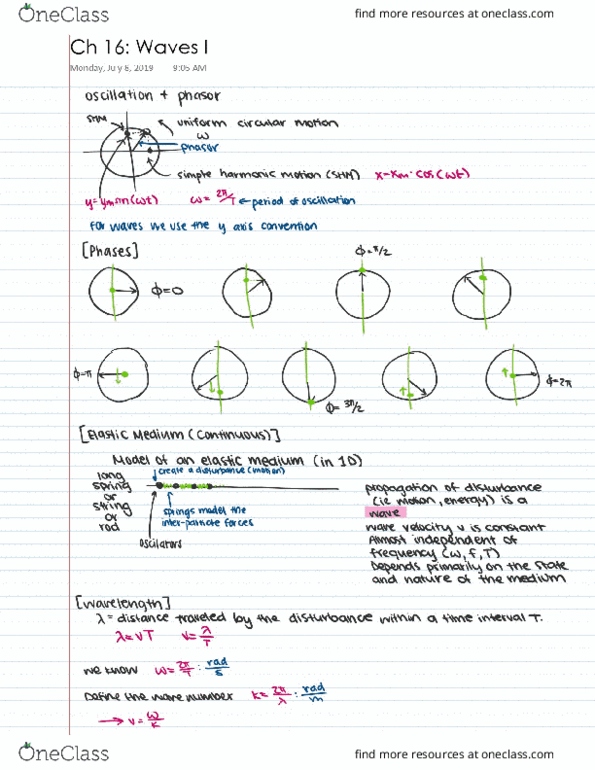 OneClass
find more resources at oneclass.com
Ch 16: Waves I
Monday, July 8, 2019 9:05 AM
oscillation + phasor
SHM
uniform circular motion
ω
phasor
simple harmonic motion (SHM) x=xm·cos(ωt)
y=ymsin(ωt) ω=2π/T ← period of oscillation
for waves we use the y axis convention
[Phases]
ϕ=π/2
ϕ=0
ϕ=π
ϕ=2π
ϕ=3π/2
[Elastic Medium (Continuous)]
Model of an elastic medium (in 1D)
create a disturbance (motion)
long
spring
or
string
or
rod
springs model the
inter-particle forces
oscilators
propagation of disturbance
(ie motion, energy) is a
wave
wave velocity v is constant
Almost independent of
frequency (ω, f, T)
Depends primarily on the state
and nature of the medium
[Wavelength]
λ = distance traveled by the disturbance within a time interval T.
λ=vT v=λ/T
we know ω=2π/T : rad/s
Define the wave number k=2π/λ : rad/m
→ v=ω/k
OneClass
find more resources at oneclass.com